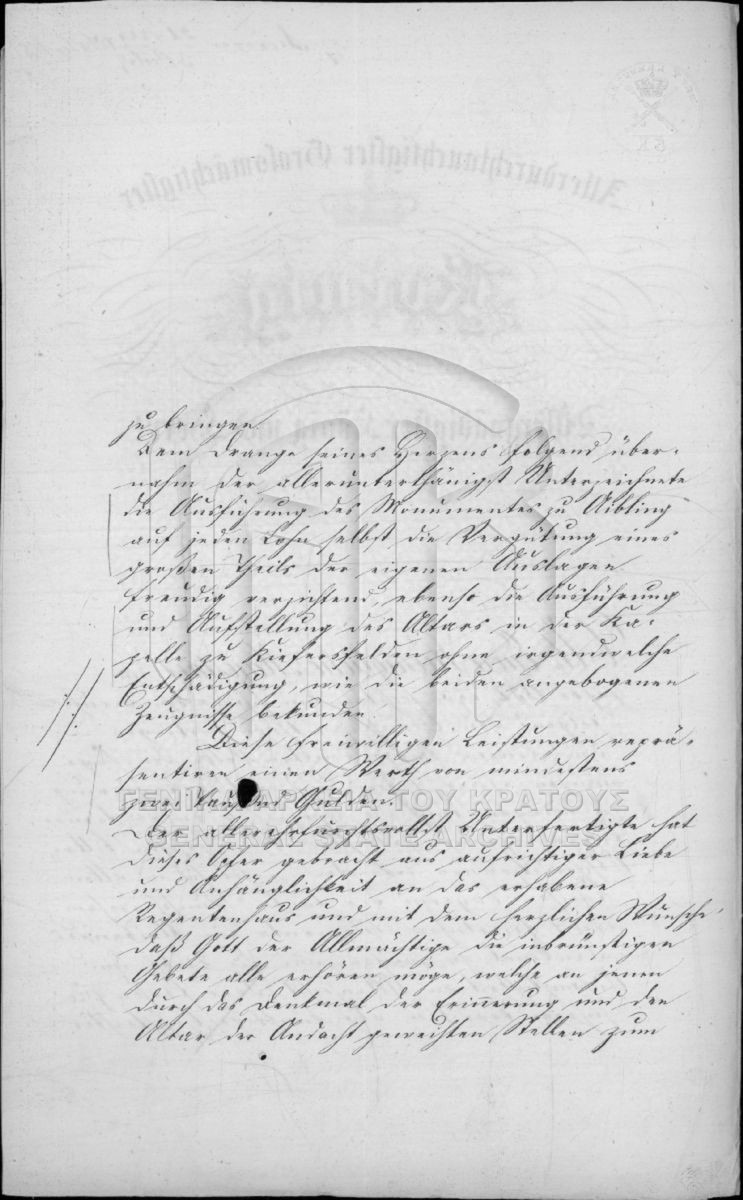 zu bringen.
Dem Drange seines Herzens folgend über-
nahm der allerunterthänigst Unterzeichnete
die Ausführung des Monumentes zu Aibling
auf jeden Lohn selbst die Vergütung eines
großen Theils der eigenen Auslagen
freudig verzichtend, ebenso die Ausführung
und Aufstellung des Altars in der Ka-
pelle zu Kiefersfelden ohne irgendwelche
Entschädigung, wie die beiden angebogenen
Zeugnisse bekunden.
Diese freiwilligen Leistungen reprä-
sentiren einen Werth von mindestens
zwei tausend Gulden.
ΓΕΝΙΚΑ ΑΡΧΕΙΑ ΤΟΥ ΚΡΑΤΟΥΣ
GENERAL STATE ARCHIVES
Der allerehrfurchtsvollst Unterfertigte hat
dieses Opfer gebracht aus aufrichtiger Liebe
und Anhänglichkeit an das erhabene
Regentenhaus und mit dem herzlichen Wunsche,
daß Gott der Allmächtige die inbrünstigen
Gebete alle erhören möge, welche an jenen
durch das Denkmal der Erinnerung und den
Altar der Andacht geweihten Stellen zum